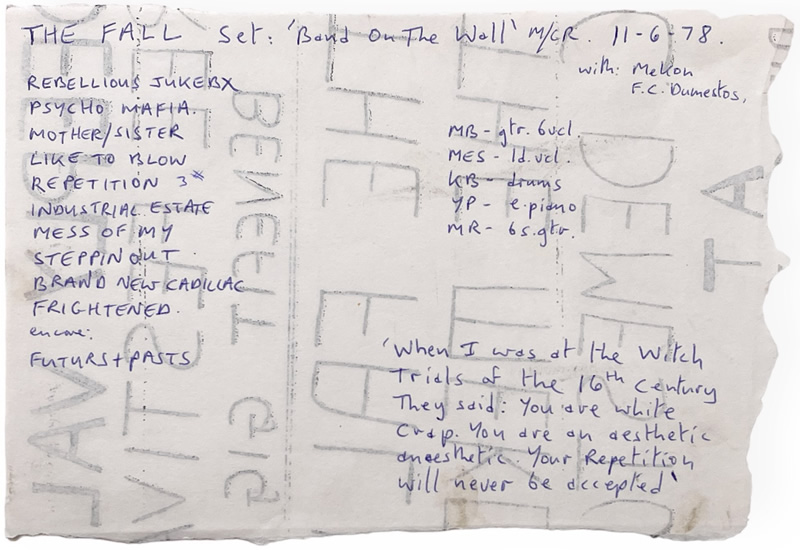 THE FALL Set: 'Band On The Wall' M/CR. 11-6-78.
with: Mekon
F.C. Dumestos,
REBELLIOUS JUKEBX
PSYCHO MAFIA.
MOTHER/SISTER
LIKE TO BLOW
REPETITION 3*
INDUSTRIAL ESTATE
MESS OF MY
STEPPIN OUT
BRAND NEW CADILLAC
FRIGHTENED.
encore:
FUTURS+PASTS
MB - gtr. bvcl.
MES - ld.vcl.
KB - drums
YP - e.piano
MR - bs.gtr.
'When I was at the Witch
Trials of the 16th Century
They said: You are white
Crap. You are an aesthetic
anaesthetic. Your Repetition
will never be accepted'